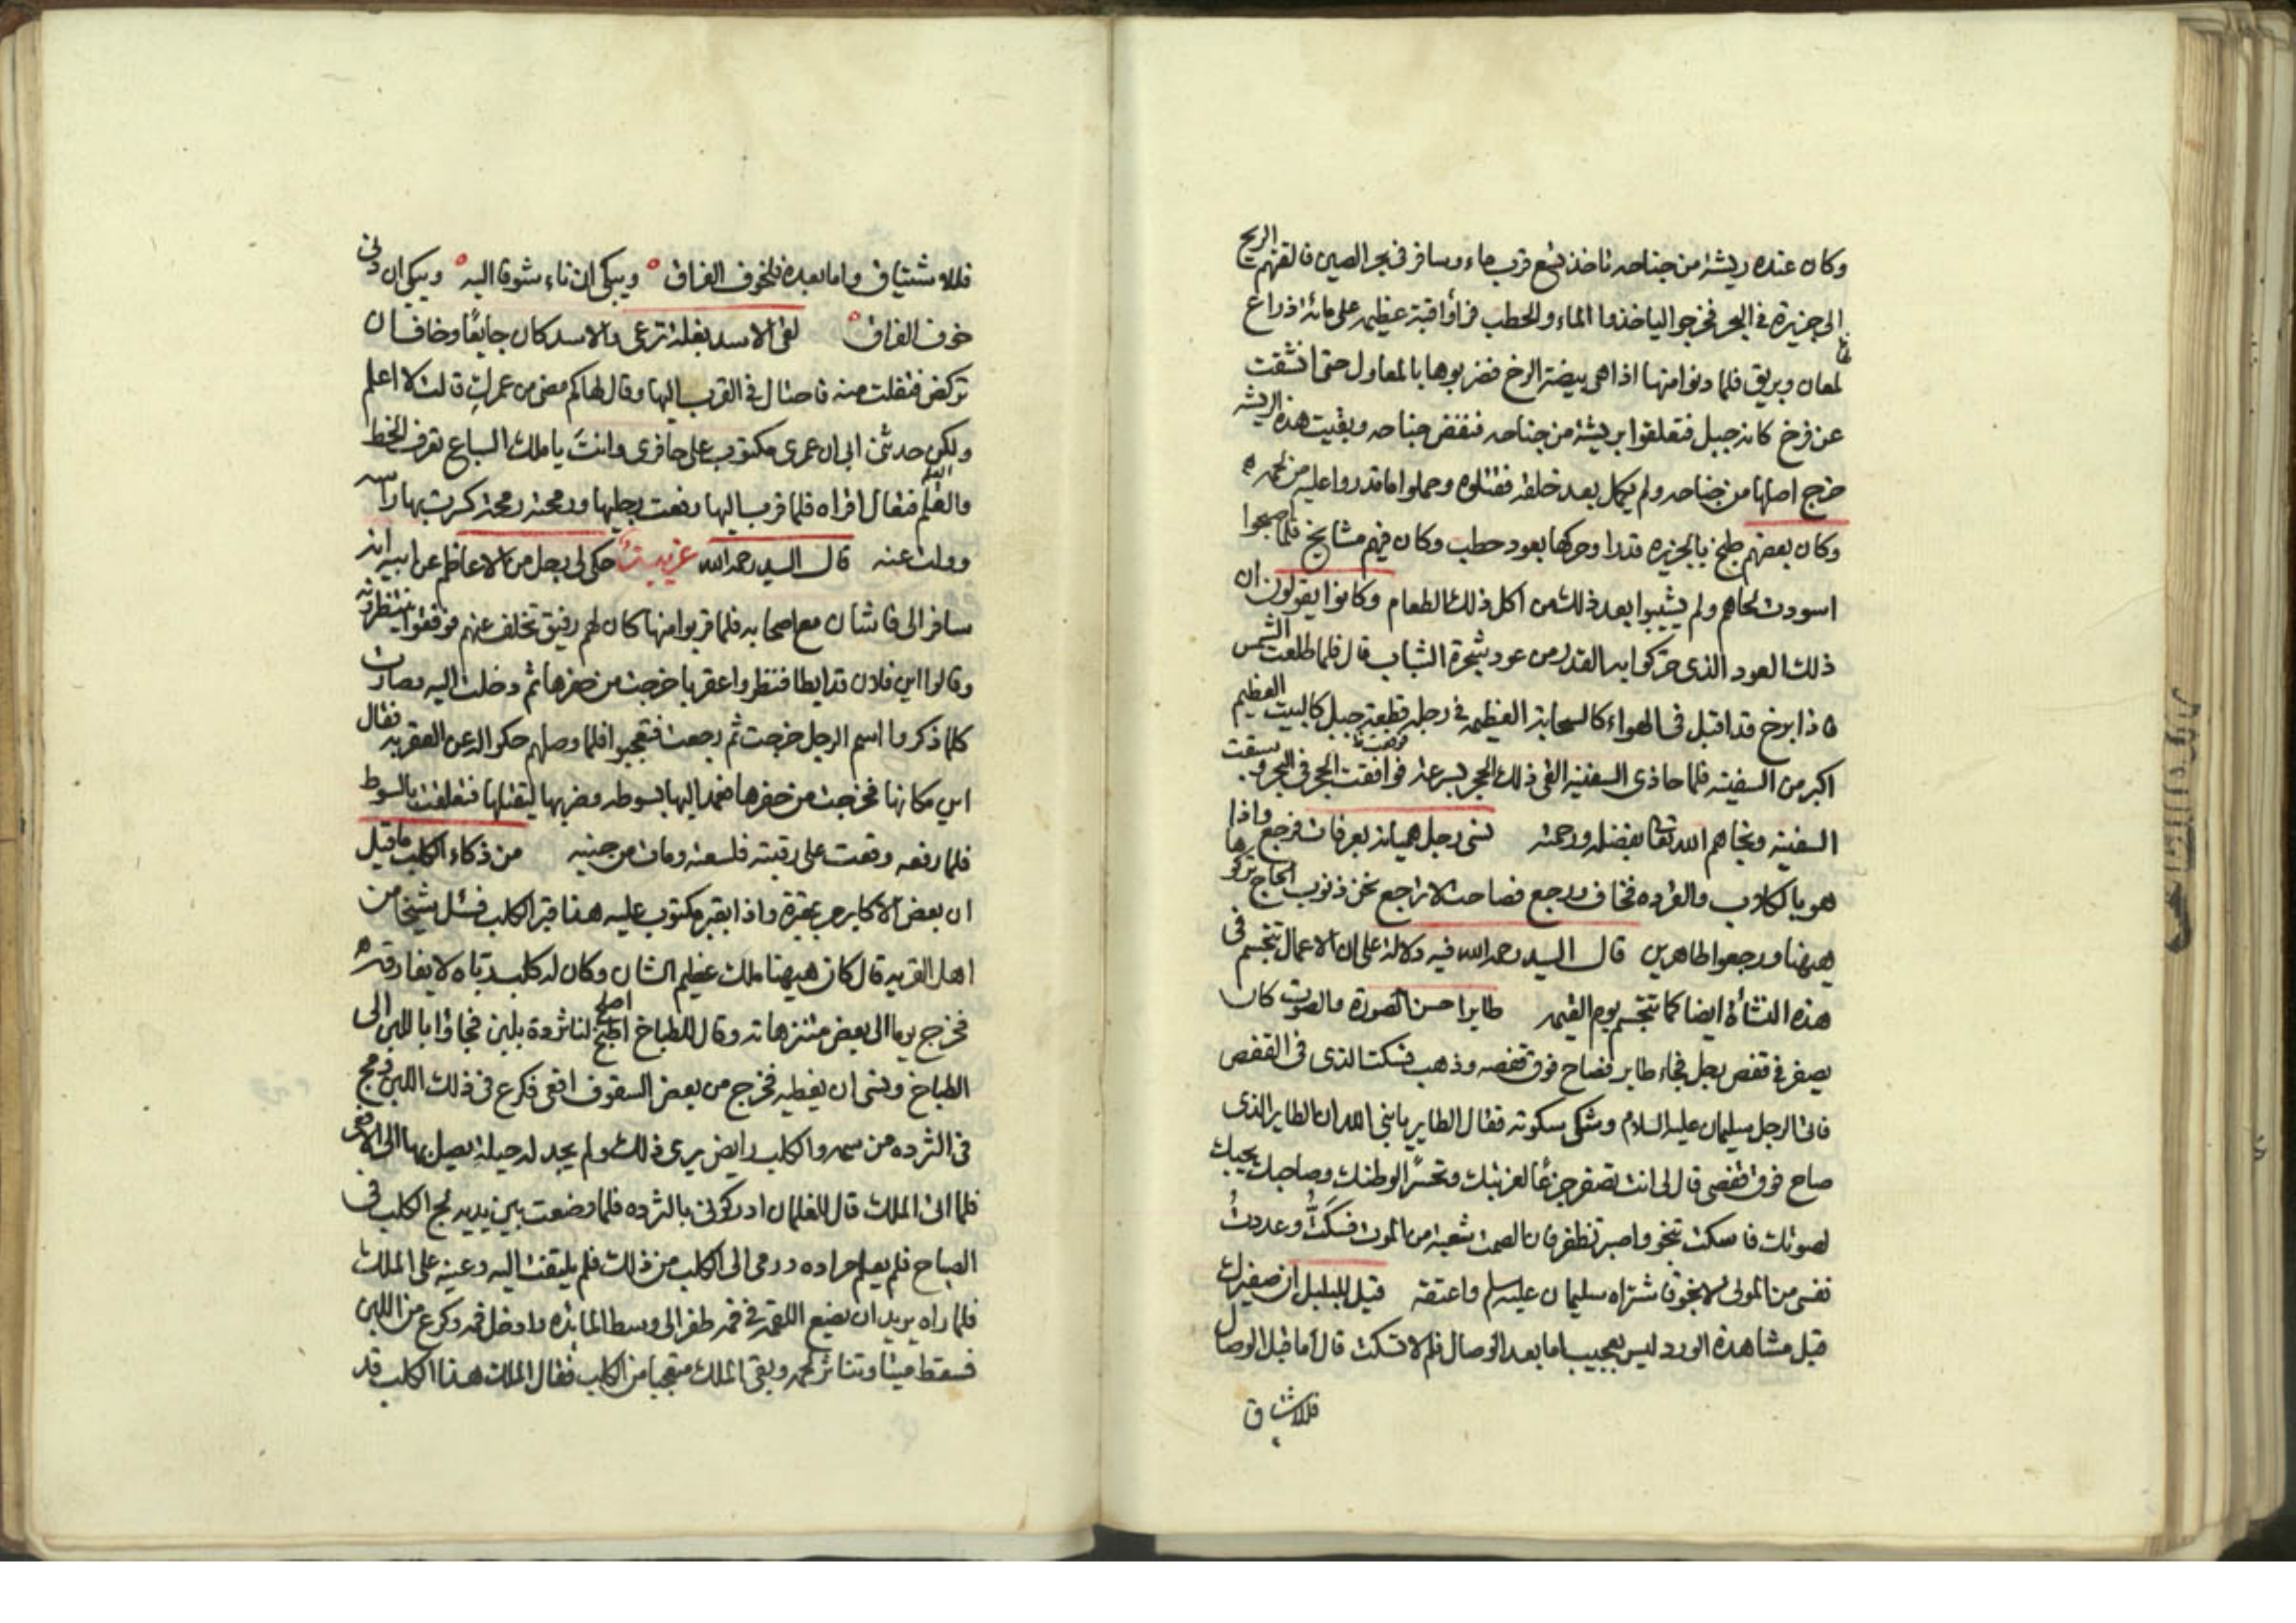 وكان عنده ريشة من جناحه تاخذ تسع قرب ماء وسافر في بحر الصين فالقتهم الريح
الى جزيرة في البحر فخرجوا لياخذوا الماء والحطب فرأوا قبة عظيمة على مائة ذراع لها
لمعان وبريق فلما دنوا منها اذا هي بيضة الرخ فضربوها بالمعاول حتى انشقت
عن فرخ كانه جبل فتعلقوا بريشة من جناحه فنفض جناحه وبقيت هذه الريشة
خرج اصلها من جناحه ولم يكمل بعد خلقه فقتلوه وحملوا ما قدروا عليه من لحمه
وكان بعضهم طبخ بالجزيره قدرا وحركها بعود حطب وكان فيهم مشايخ فلما اصبحوا
اسودت لحاهم ولم يشيبوا بعد ذلك من اكل ذلك الطعام وكانوا يقولون ان
ذلك العود الذي حركوا به القدر من عود شجرة الشباب قال فلما طلعت الشمس
فاذا برخ قد اقبل في الهواء كالسحابة العظيمه في رجله قطعة جبل كالبيت العظيم
اكبر من السفينه فلما حاذى السفينه القى ذلك الحجر بسرعة فوقعت الحجر في البحر وسبقت
السفينه ونجاهم الله تعالى بفضله ورحمته نسى رجل هميانه بعرفات فرجع واذا
هو بالكلاب والقرده فخاف ورجع فصاحت لا تراجع نحن ذنوب الحاج تركوها
هيهنا ورجعوا طاهرين قال السيد رحمه الله فيه دلالة على ان الاعمال تتجسم في
هذه النشأة ايضا كما تتجسم يوم القيمه طايرا حسن الصورة والصوت كان
يصفر في قفص رجل فجاء طاير فصاح فوق قفصه وذهب فسكت الذي في القفص
فاتى الرجل سليمان عليه السلام وشكى سكوته فقال الطاير يا نبي الله ان الطاير الذي
صاح فوق قفصي قال لي انت تصفر جزعًا لغربتك وتحسرًا لوطنك وصاحبك يحبك
لصوتك فاسكت تنجو واصبر تظفر فان الصمت شعبة من الموت فسكتُّ وعددتُ
نفسي من الموتى لانجو فاشتراه سليمان عليه السلم واعتقه قيل للبلبل ان صفيرك
قبل مشاهدة الورد ليس بعجيب اما بعد الوصال فلم لا تسكت قال اما قبل الوصال
فللاشتياق
فللاشتياق واما بعده فلخوف الفراق ويبكي ان ناء شوقا اليه ويبكي ان دنى
خوف الفراق لقى الاسد بغلة ترعى والاسد كان جايعًا وخاف ان
تركض فتفلت منه فاحتال في القرب اليها وقال لها كم مضى من عمركِ قالت لا اعلم
ولكن حدثنى ابي ان عمري مكتوب على حافري وانتَ يا ملك السباع تعرف الخط
والقلم فقال اقراه فلما قرب اليها رفعت رجليها ورمحته رمحة كسرت بها راسه
وولت عنه قال السيد رحمه الله حكى لي رجل من الاعاظم عن ابيه انه
سافر الى قاشان مع اصحابه فلما قربوا منها كان لهم رفيق تخلف عنهم فوقفوا ينتظرونه
وقالوا اين فلان قد ابطا فنظروا عقربا خرجت من حفرها ثم دخلت اليه وصارت
كلما ذكروا اسم الرجل خرجت ثم رجعت فتعجبوا فلما وصلهم حكوا له عن العقرب فقال
اين مكانها فخرجت من حفرها فمد اليها بسوطه وضربها ليقتلها فتعلقت بالسوط
فلما رفعه وقعت على رقبته فلسعته ومات من حينه من ذكاء الكلب ما قيل
ان بعض الاكابر مر بمقبرة واذا بقبر مكتوب عليه هذا قبر الكلب فسئل شيخا من
اهل القريه قال كان هيهنا ملك عظيم الشان وكان له كلب رباه لا يفارقه
فخرج يوما الى بعض منتزهاته وقال للطباخ اصلح لنا ثردة بلبن فجاؤا باللبن الى
الطباخ ونسى ان يغطيه فخرج من بعض السقوف افعى فكرع في ذلك اللبن ومج
في الثرده من سمه والكلب رابض يرى ذلك ولم يجد له حيلة يصل بها الى الافعى
فلما اتى الملك قال للغلمان ادركوني بالثرده فلما وضعت بين يديه لج الكلب في
الصياح فلم يعلم مراده ورمى الى الكلب من ذلك فلم يلتفت اليه وعينه على الملك
فلما راه يريد ان يضع اللقمه في فمه طفر الى وسط المائده وادخل فمه وكرع من اللبن
فسقط ميتا وتناثر لحمه وبقى الملك متعجبا من الكلب فقال الملك هذا الكلب قد